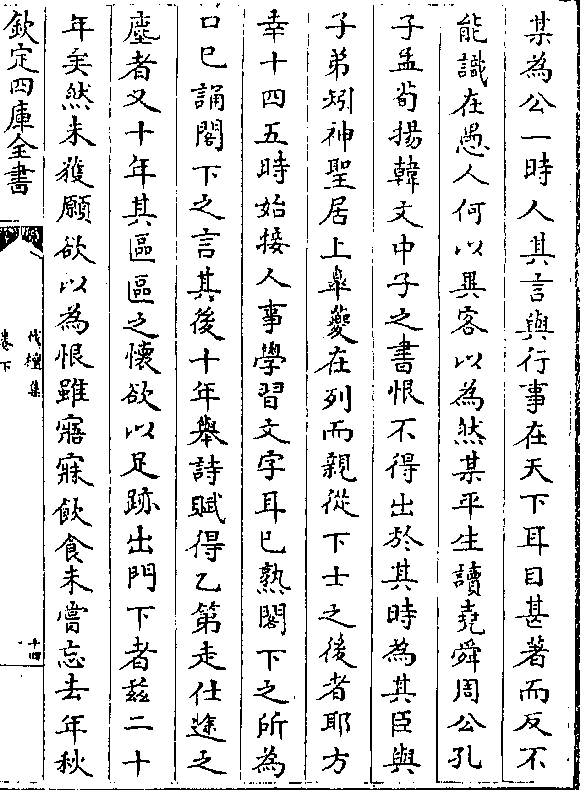 某為公一時人其言與行事在天下耳目甚著而反不
能識在愚人何以異客以為然某平生讀堯舜周公孔
子孟荀揚韓文中子之書恨不得出於其時為其臣與
子弟矧神聖居上臯夔在列而親從下士之後者耶方
幸十四五時始接人事學習文字耳已熟閣下之所為
口已誦閣下之言其後十年舉詩賦得乙第走仕途之
塵者又十年其區區之懷欲以足跡出門下者茲二十
年矣然未獲願欲以為恨雖寤寐飲食未嘗忘去年秋
欽定四庫全書
伐檀集
卷下
十四